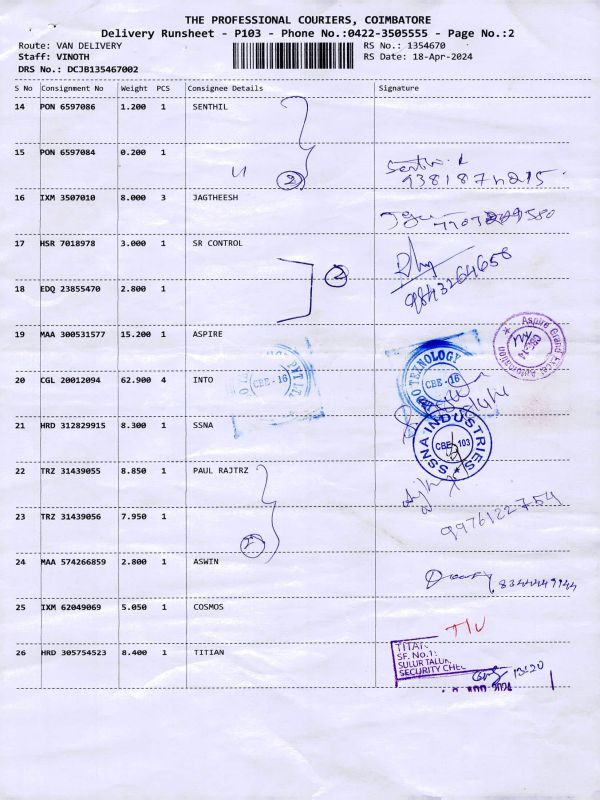 THE PROFESSIONAL COURIERS, COIMBATORE
Delivery Runsheet - P103 - Phone No.:0422-3505555 - Page No.:2
Route: VAN DELIVERY RS No.: 1354670
Staff: VINOTH RS Date: 18-Apr-2024
DRS No.: DCJB135467002
S No Consignment No Weight PCS Consignee Details Signature
14 PON 6597086 1.200 1 SENTHIL
15 PON 6597084 0.200 1
2
16 IXM 3507010 8.000 3 JAGTHEESH
17 HSR 7018978 3.000 1 SR CONTROL
2
9843264658
18 EDQ 23855470 2.800 1
19 MAA 300531577 15.200 1 ASPIRE
20 CGL 20012094 62.900 4 INTO
CBE - 16
O TEXNOLOGY
CBE - 16
21 HRD 312829915 8.300 1 SSNA
SSNA INDUSTRIES
CBE 103
22 TRZ 31439055 8.850 1 PAUL RAJTRZ
23 TRZ 31439056 7.950 1
9976122754
24 MAA 574266859 2.800 1 ASWIN
25 IXM 62049069 5.050 1 COSMOS
26 HRD 305754523 8.400 1 TITIAN
TITAN
SF. No.1
SULUR TALUK
SECURITY CHEC
13:20